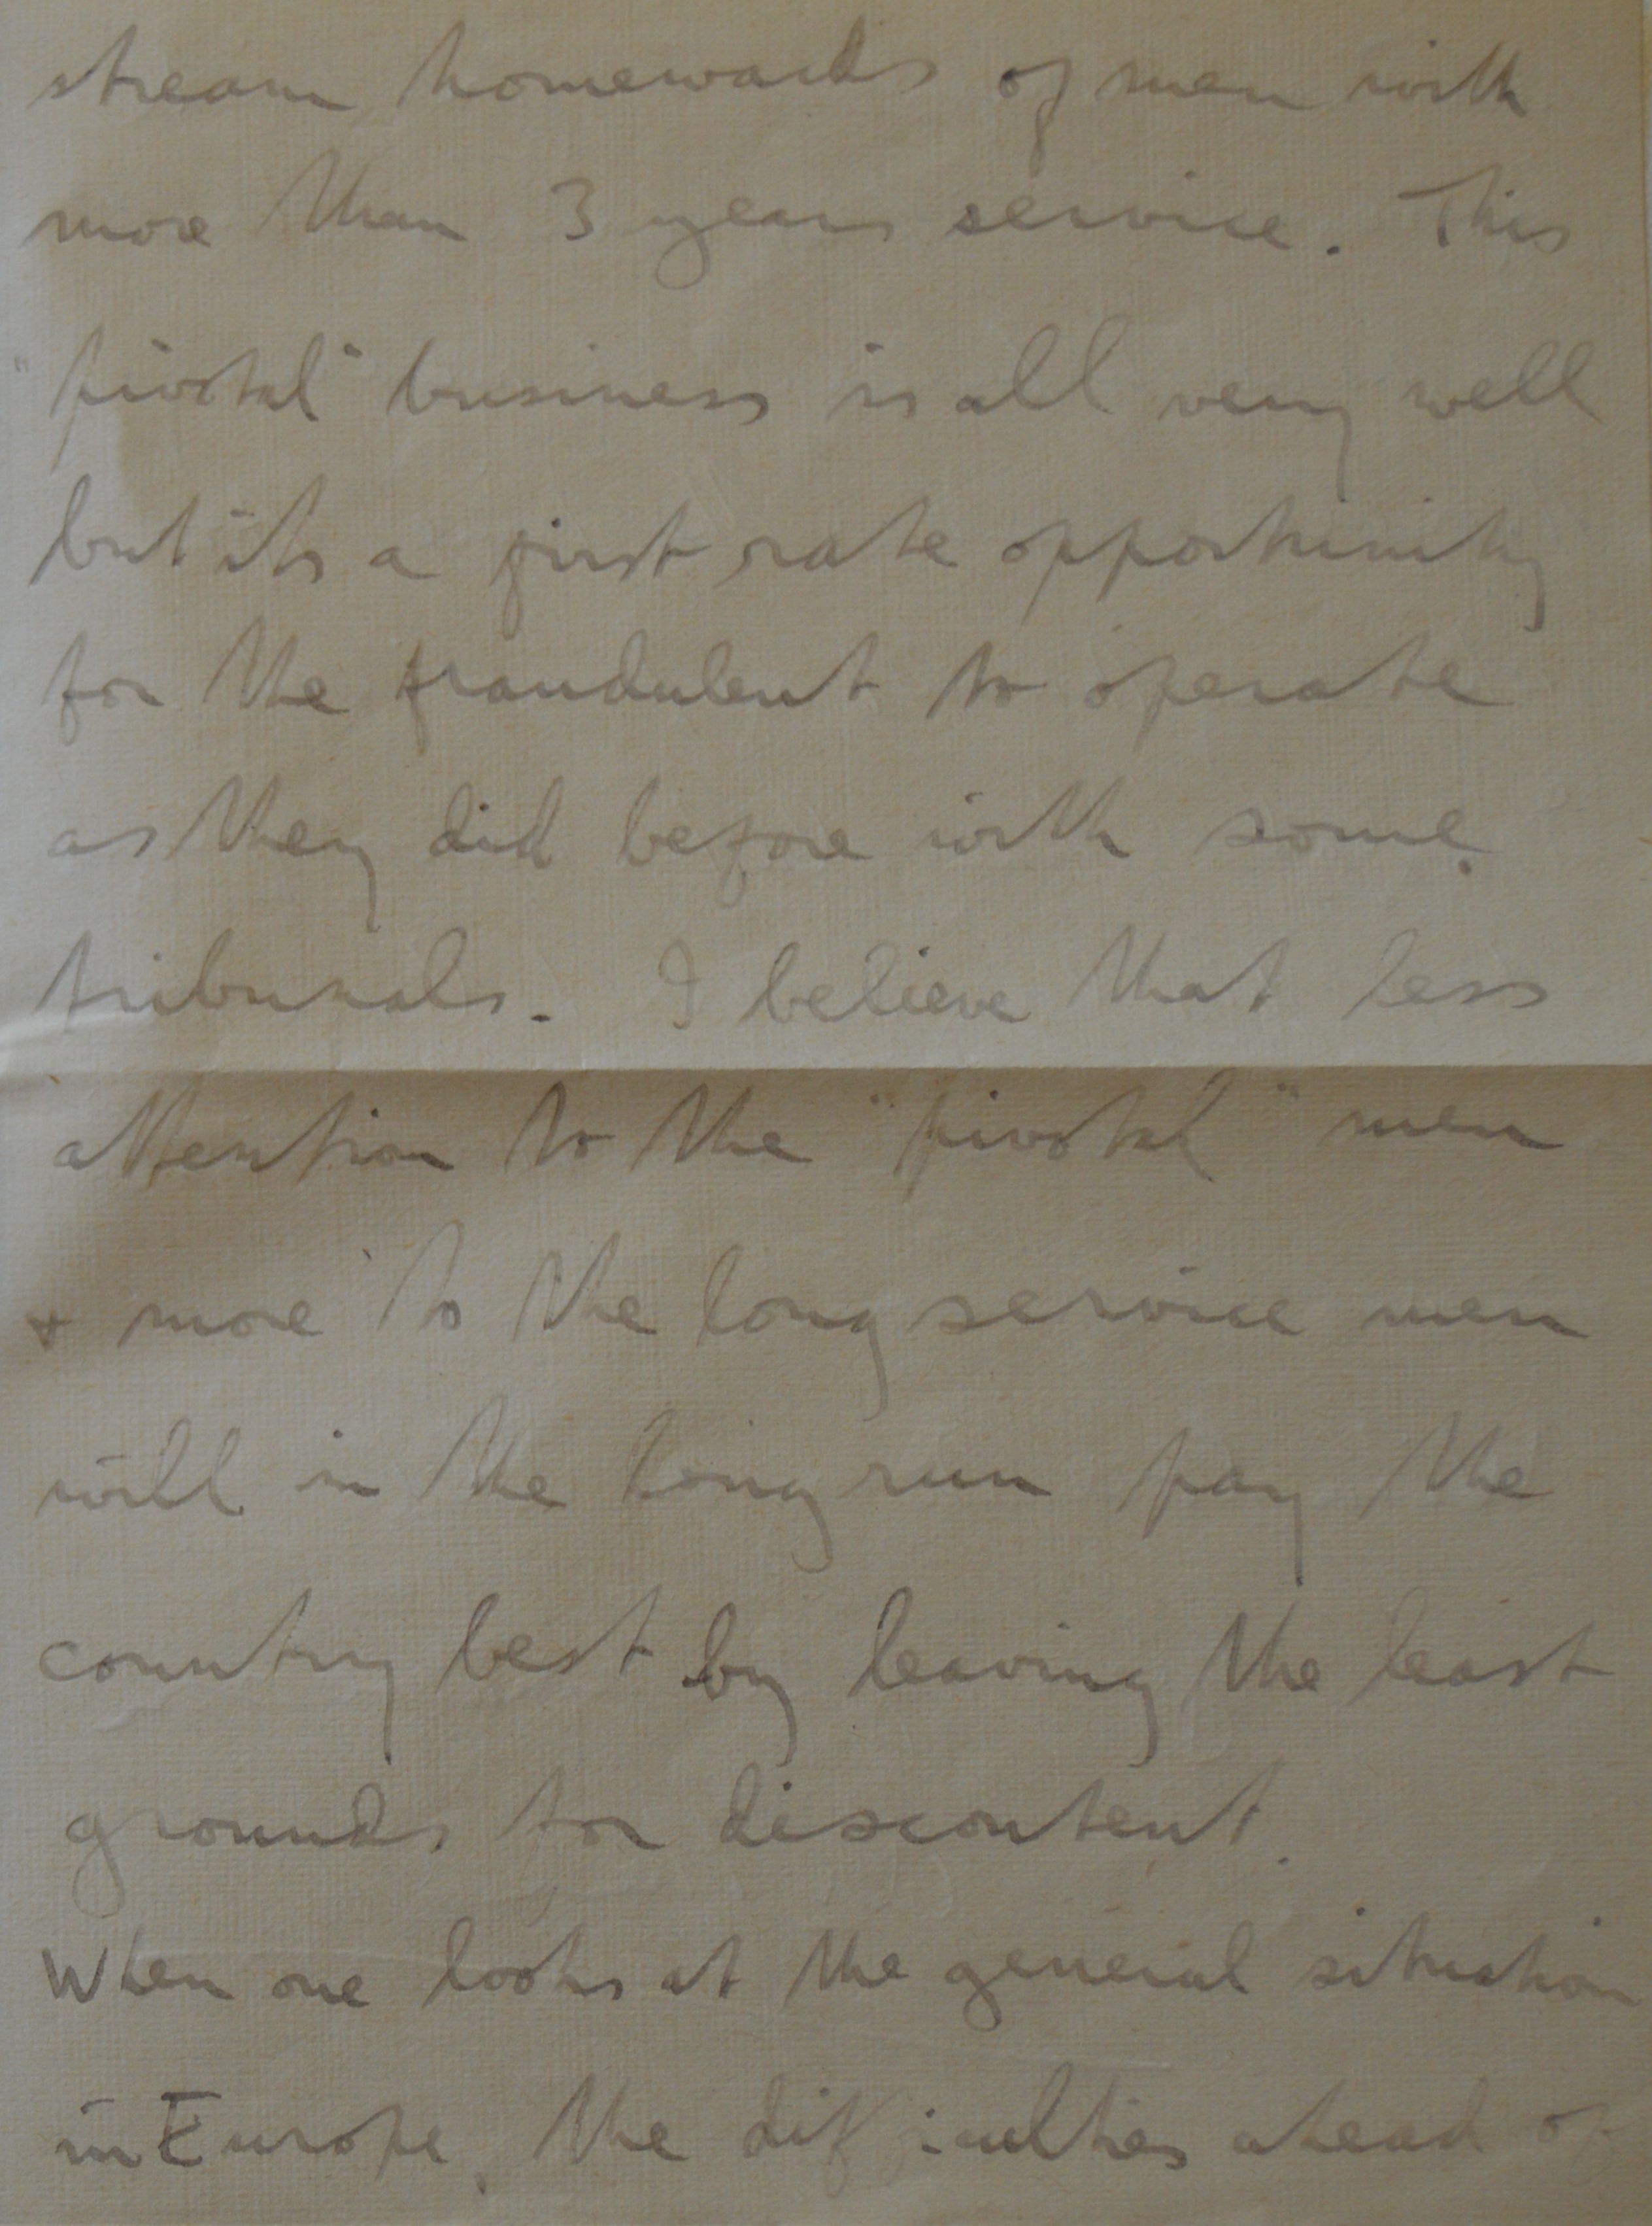 stream homewards of men with
more than 3 years service. This
"pivotal" business is all very well
but its a first rate opportunity
for the fraudulent to operate
as they did before with some
tribunals. I believe that less
attention to the "pivotal" men
+ more to the long service men
will in the long run pay the
country best by leaving the least
grounds for discontent.
When one looks at the general situation
in Europe, the difficulties ahead of